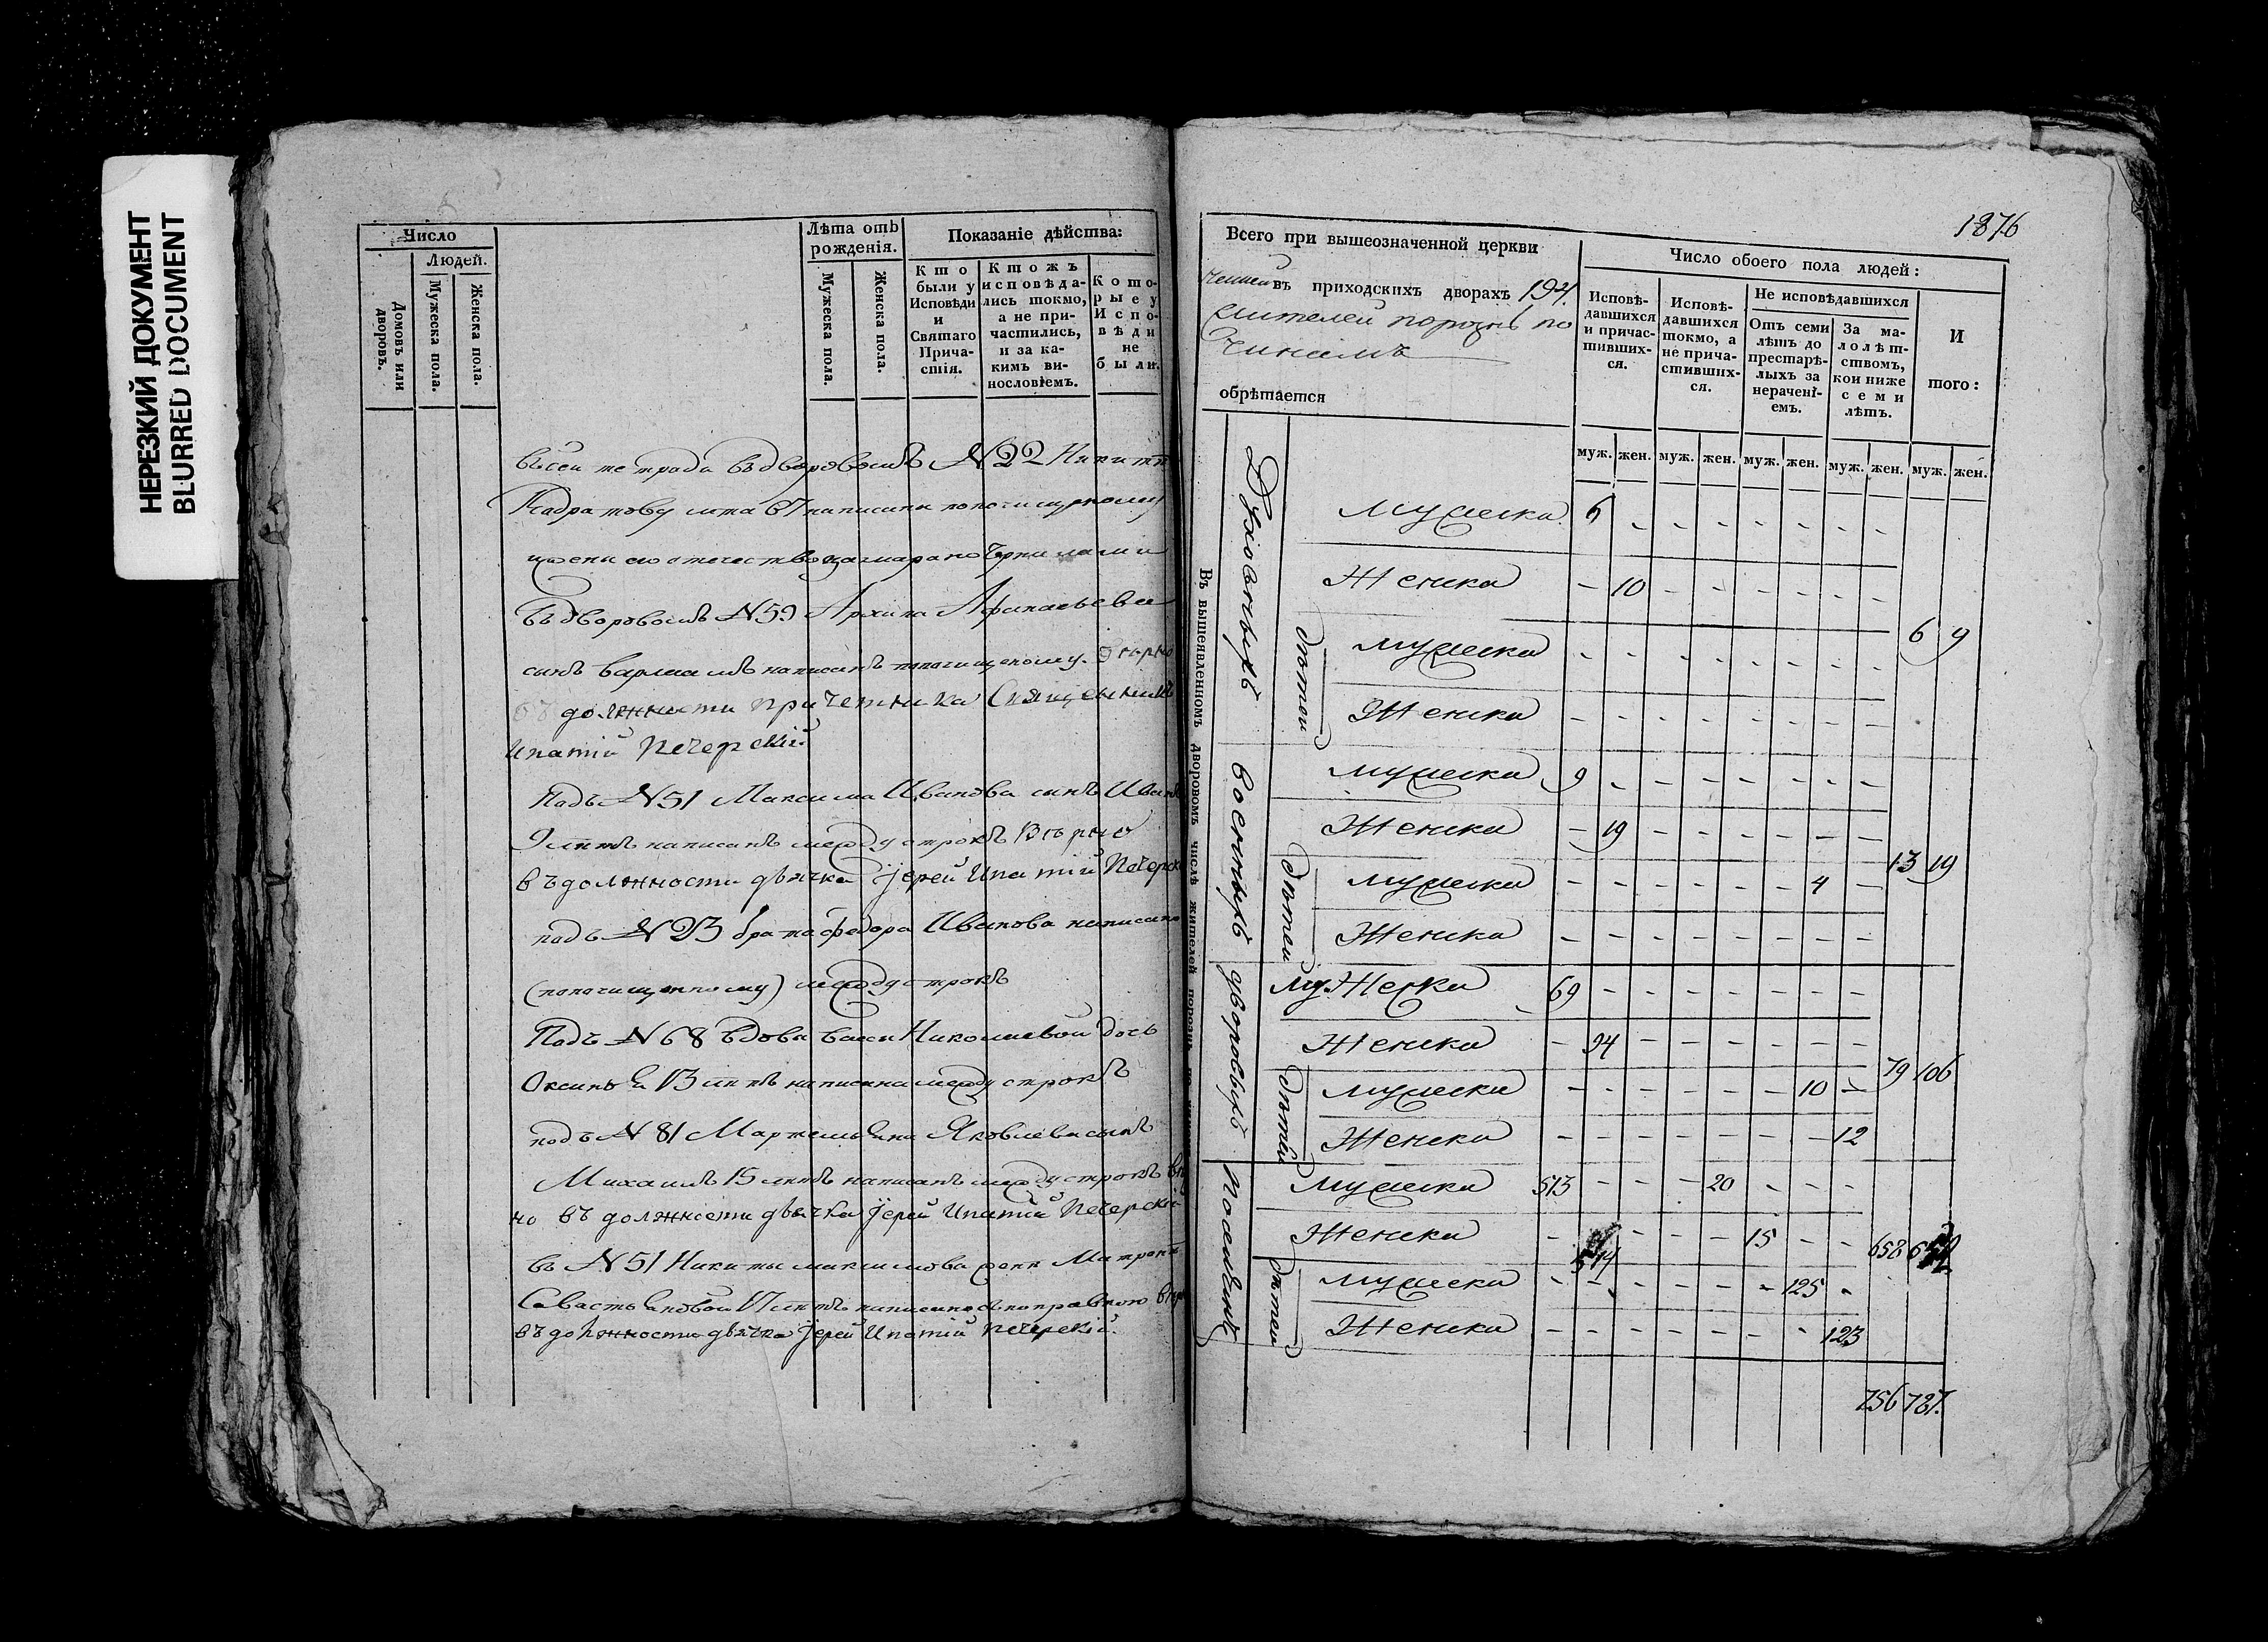 НЕРЕЗКИЙ ДОКУМЕНТ
BLURRED DOCUMENT
Число
Людей.
Домовъ или дворовъ.
Мужеска пола.
Женска пола.
Лѣта отъ рожденія.
Мужеска пола.
Женска пола.
Показаніе дѣйства:
Кто были у Исповѣди и Святаго Причастія.
Ктожъ исповѣдались токмо, а не причастились, и за какимъ винословіемъ.
Которые у Исповѣди не были.
въ сей тетради въ дворовомъ N 22 Никитѣ
лѣта 67 написаны по почищеному
отечество замарано чернилами
Въ дворовомъ N 59 Архипа Афанасьева
сынъ Варламъ написанъ по почищеному. Вѣрно
въ должности причетника Священникъ
Ипатій Печерскій
Подъ N 51 Максима Иванова сынъ Иванъ
9 лѣтъ написанъ между строкъ Вѣрно
въ должности дьячка Іерей Ипатій Печерскій
подъ N 23 брата Федора Иванова написано
(по почищенному) между строкъ
Подъ N 68 вдовы Николаевой дочь
13 лѣтъ написана между строкъ
подъ N 81 Мартемьяна Яковлева сынъ
Михаилъ 15 лѣтъ написанъ между строкъ вѣр
но въ должности дьячка Іерей Ипатій Печерскій
въ N 51 Никиты Максимова жена Матрона
Савастьянова 17 лѣтъ написано съ поправкою
въ должности дьячка Іерей Ипатій Печерскій.
1876
Всего при вышеозначенной церкви
въ приходскихъ дворахъ 194.
жителей порознь по
чинамъ
обрѣтается
Число обоего пола людей:
Исповѣдавшихся и причастившихся.
Исповѣдавшихся токмо, а не причастившихся.
Не исповѣдавшихся
Отъ семи лѣтъ до престарѣлыхъ за нераченіемъ.
За малолѣтствомъ, кои ниже семи лѣтъ.
И того:
муж. жен. муж. жен. муж. жен. муж. жен. муж. жен.
Въ вышеявленномъ дворовомъ числѣ жителей порознь
Духовныхъ
Мужеска 6 - - - - - - -
Женска - 10 - - - - - -
дѣтей
Мужеска - - - - - - - -
6 9
Женска - - - - - - - -
Военныхъ
Мужеска 9 - - - - - - -
Женска - 19 - - - - - -
дѣтей
Мужеска - - - - - - 4 -
13 19
Женска - - - - - - - -
дворовыхъ
Мужеска 69 - - - - - - -
Женска - 94 - - - - - -
79 106
дѣтей
Мужеска - - - - - - 10 -
Женска - - - - - - - 12
Поселянъ
Мужеска 513 - - - 20 - - -
Женска - 514 - - - 15 - -
658
дѣтей
Мужеска - - - - - - 125 -
Женска - - - - - - - 123
756 787.